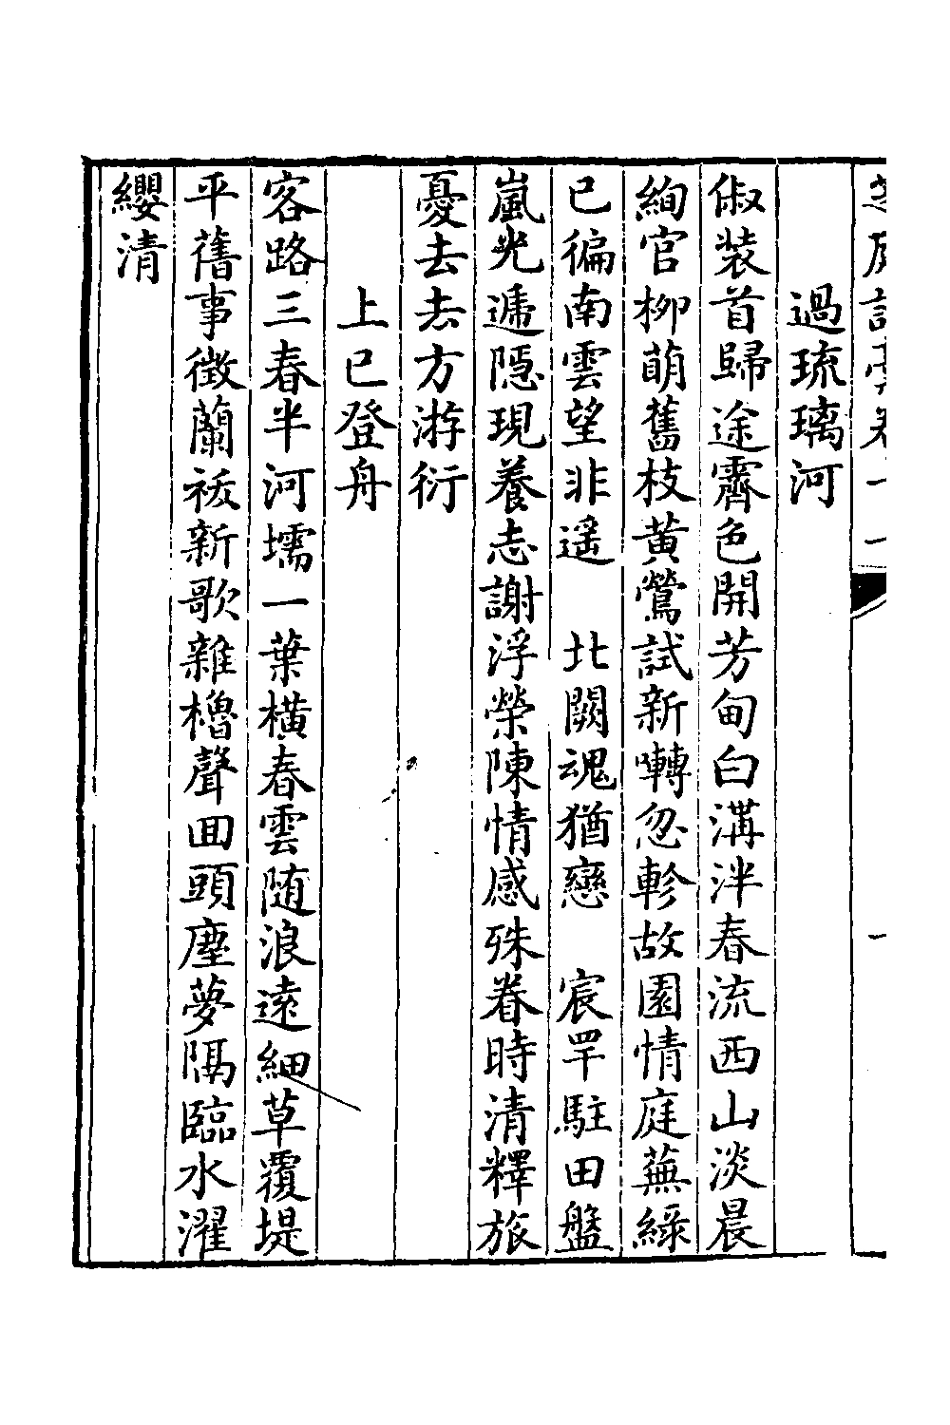 過琉璃河
俶装首歸途霽色開芳甸白溝泮春流西山淡晨
絢官柳萌舊枝黄鶯試新囀忽軫故園情庭蕪綠
已徧南雲望非遥　北闕魂猶戀　宸罕駐田盤
嵐光遞隱現養志謝浮榮陳情感殊眷時清釋旅
憂去去方游衍
上巳登舟
客路三春半河壖一葉横春雲随浪遠細草覆堤
平舊事徵蘭祓新歌雜櫓聲囬頭塵夢隔臨水濯
纓清